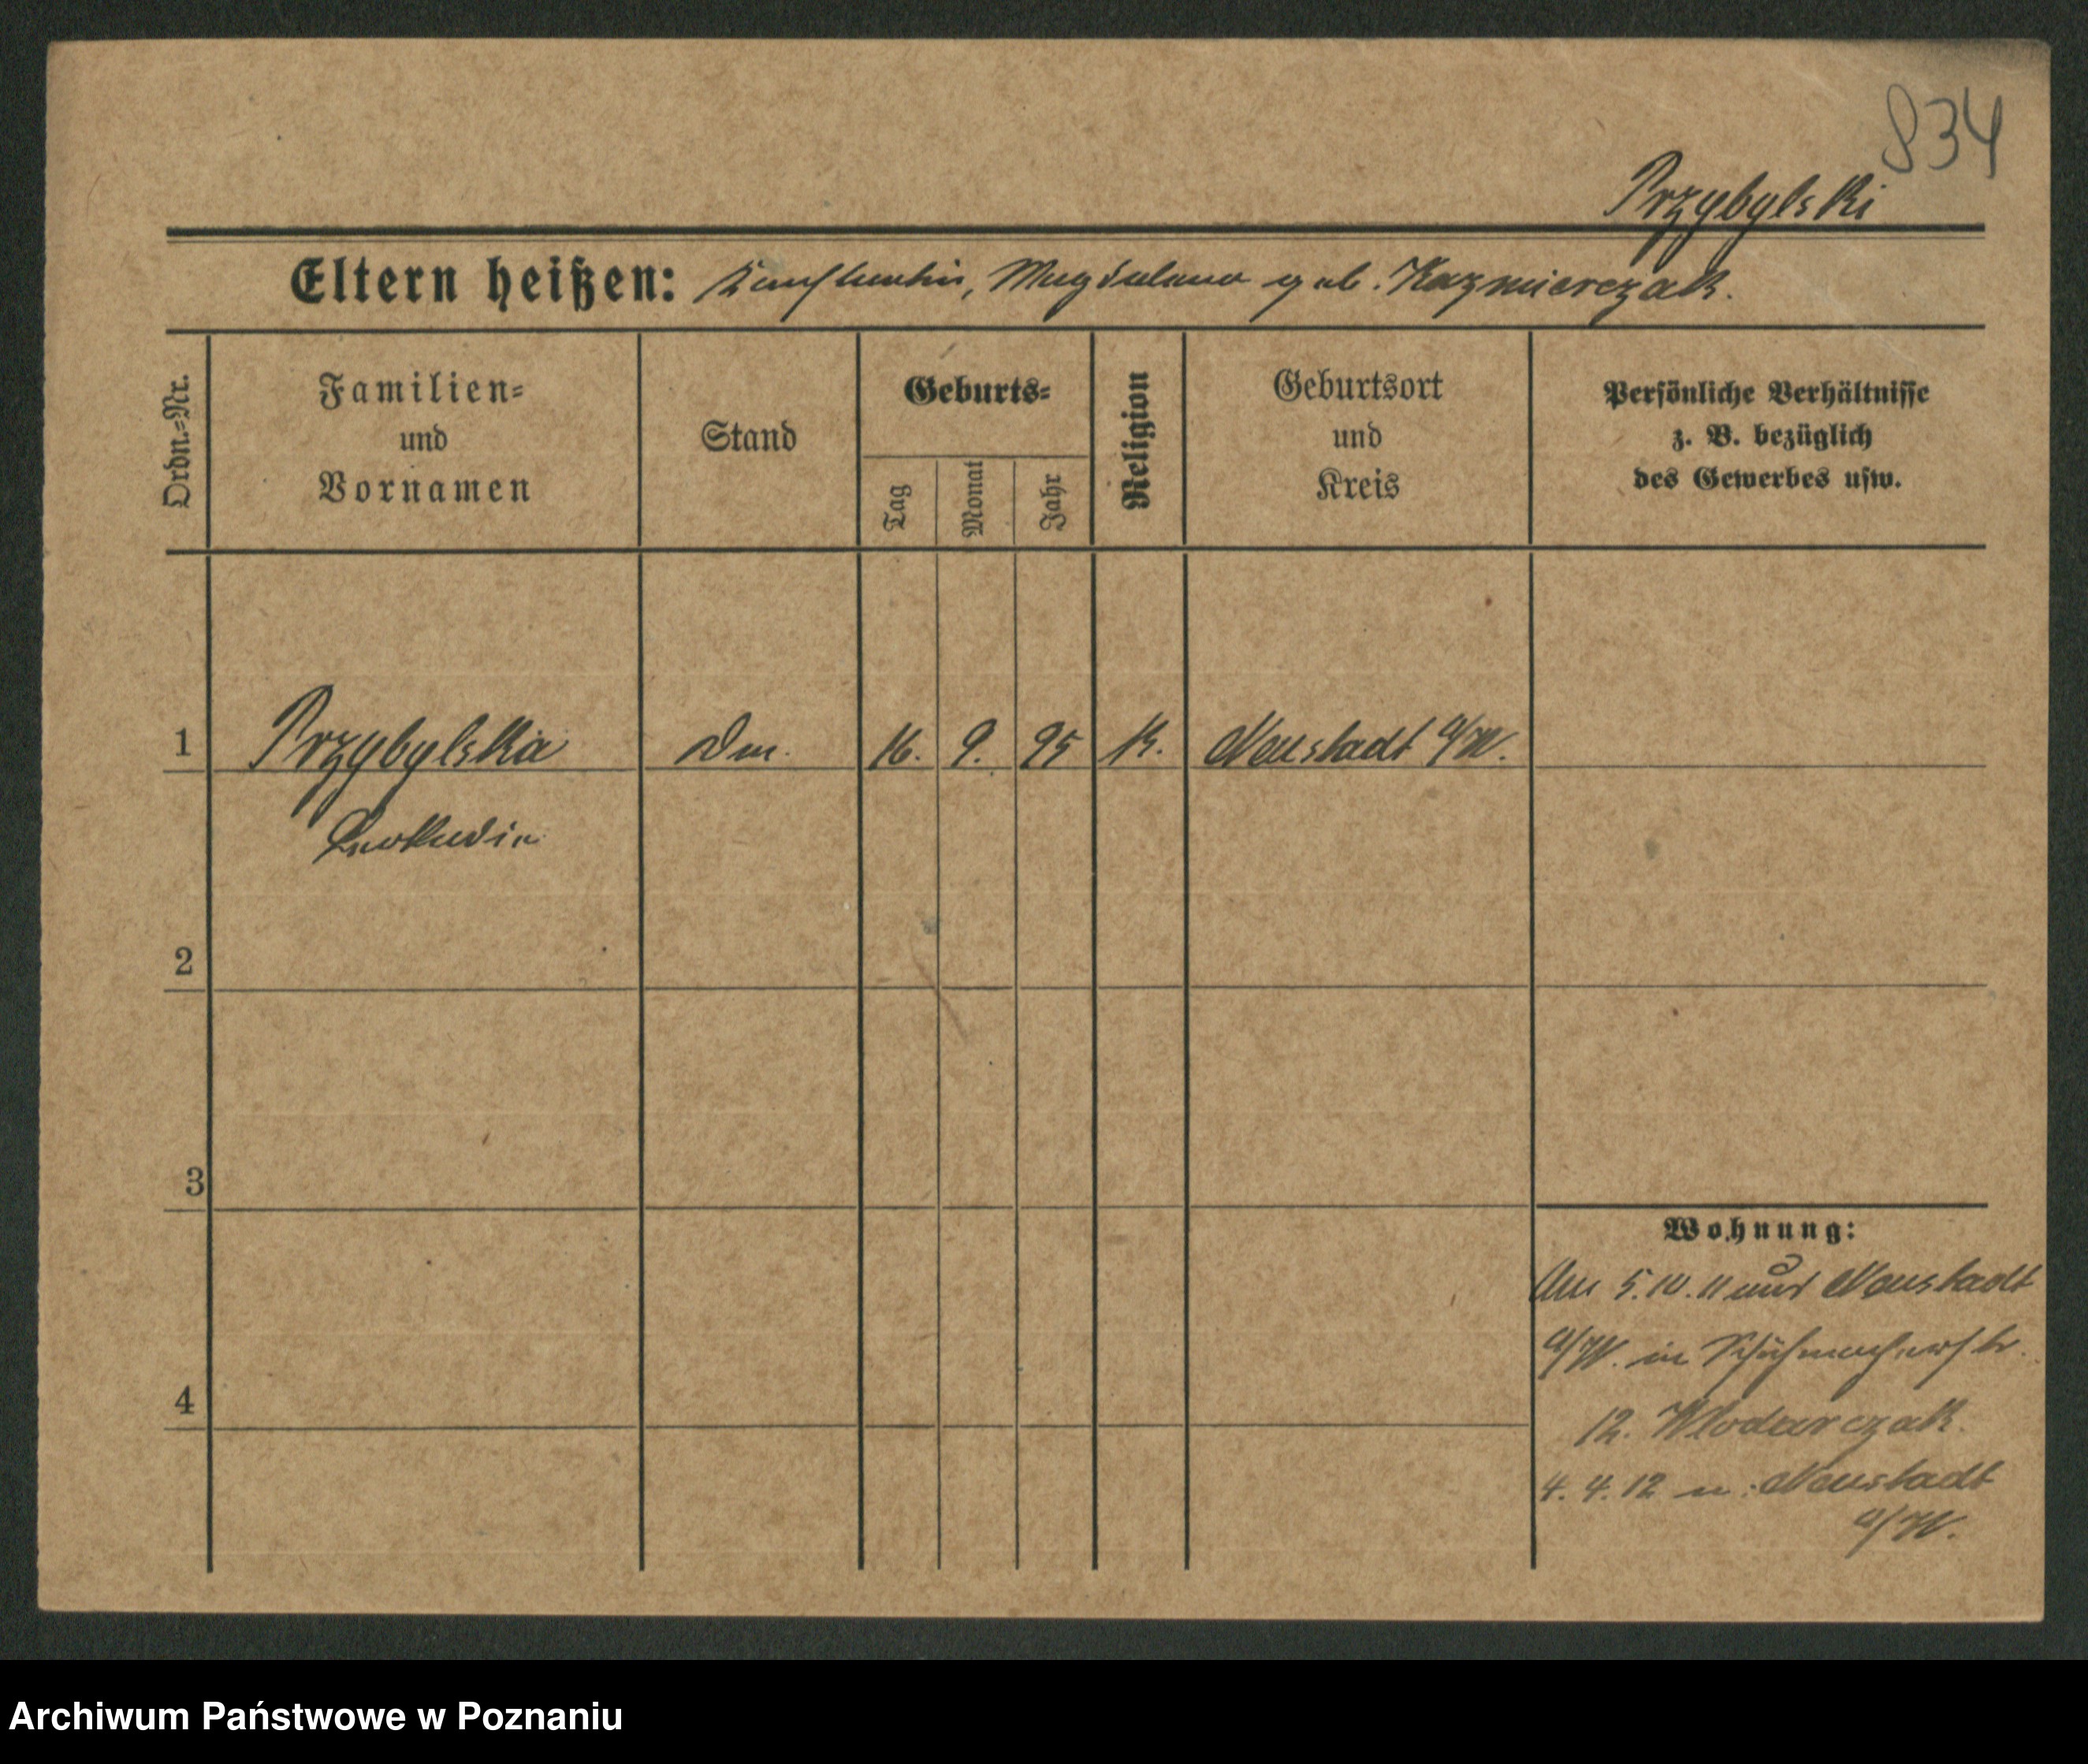 834
Przybylski
Eltern heißen: Konstantin, Magdalena geb. Kazmierczak.
Ordn.=Nr.
Familien=
und
Vornamen
Stand
Geburts=
Tag
Monat
Jahr
Religion
Geburtsort
und
Kreis
Persönliche Verhältnisse
z. B. bezüglich
des Gewerbes usw.
1 Przybylska 16. 9. 95 K. Neustadt a/W.
2
3
4
Wohnung:
5.10.11 aus Neustadt
a/W. in Schuhmacherstr.
12. Wlodarczak.
4. 4. 12 n. Neustadt
a/W.
Archiwum Państwowe w Poznaniu